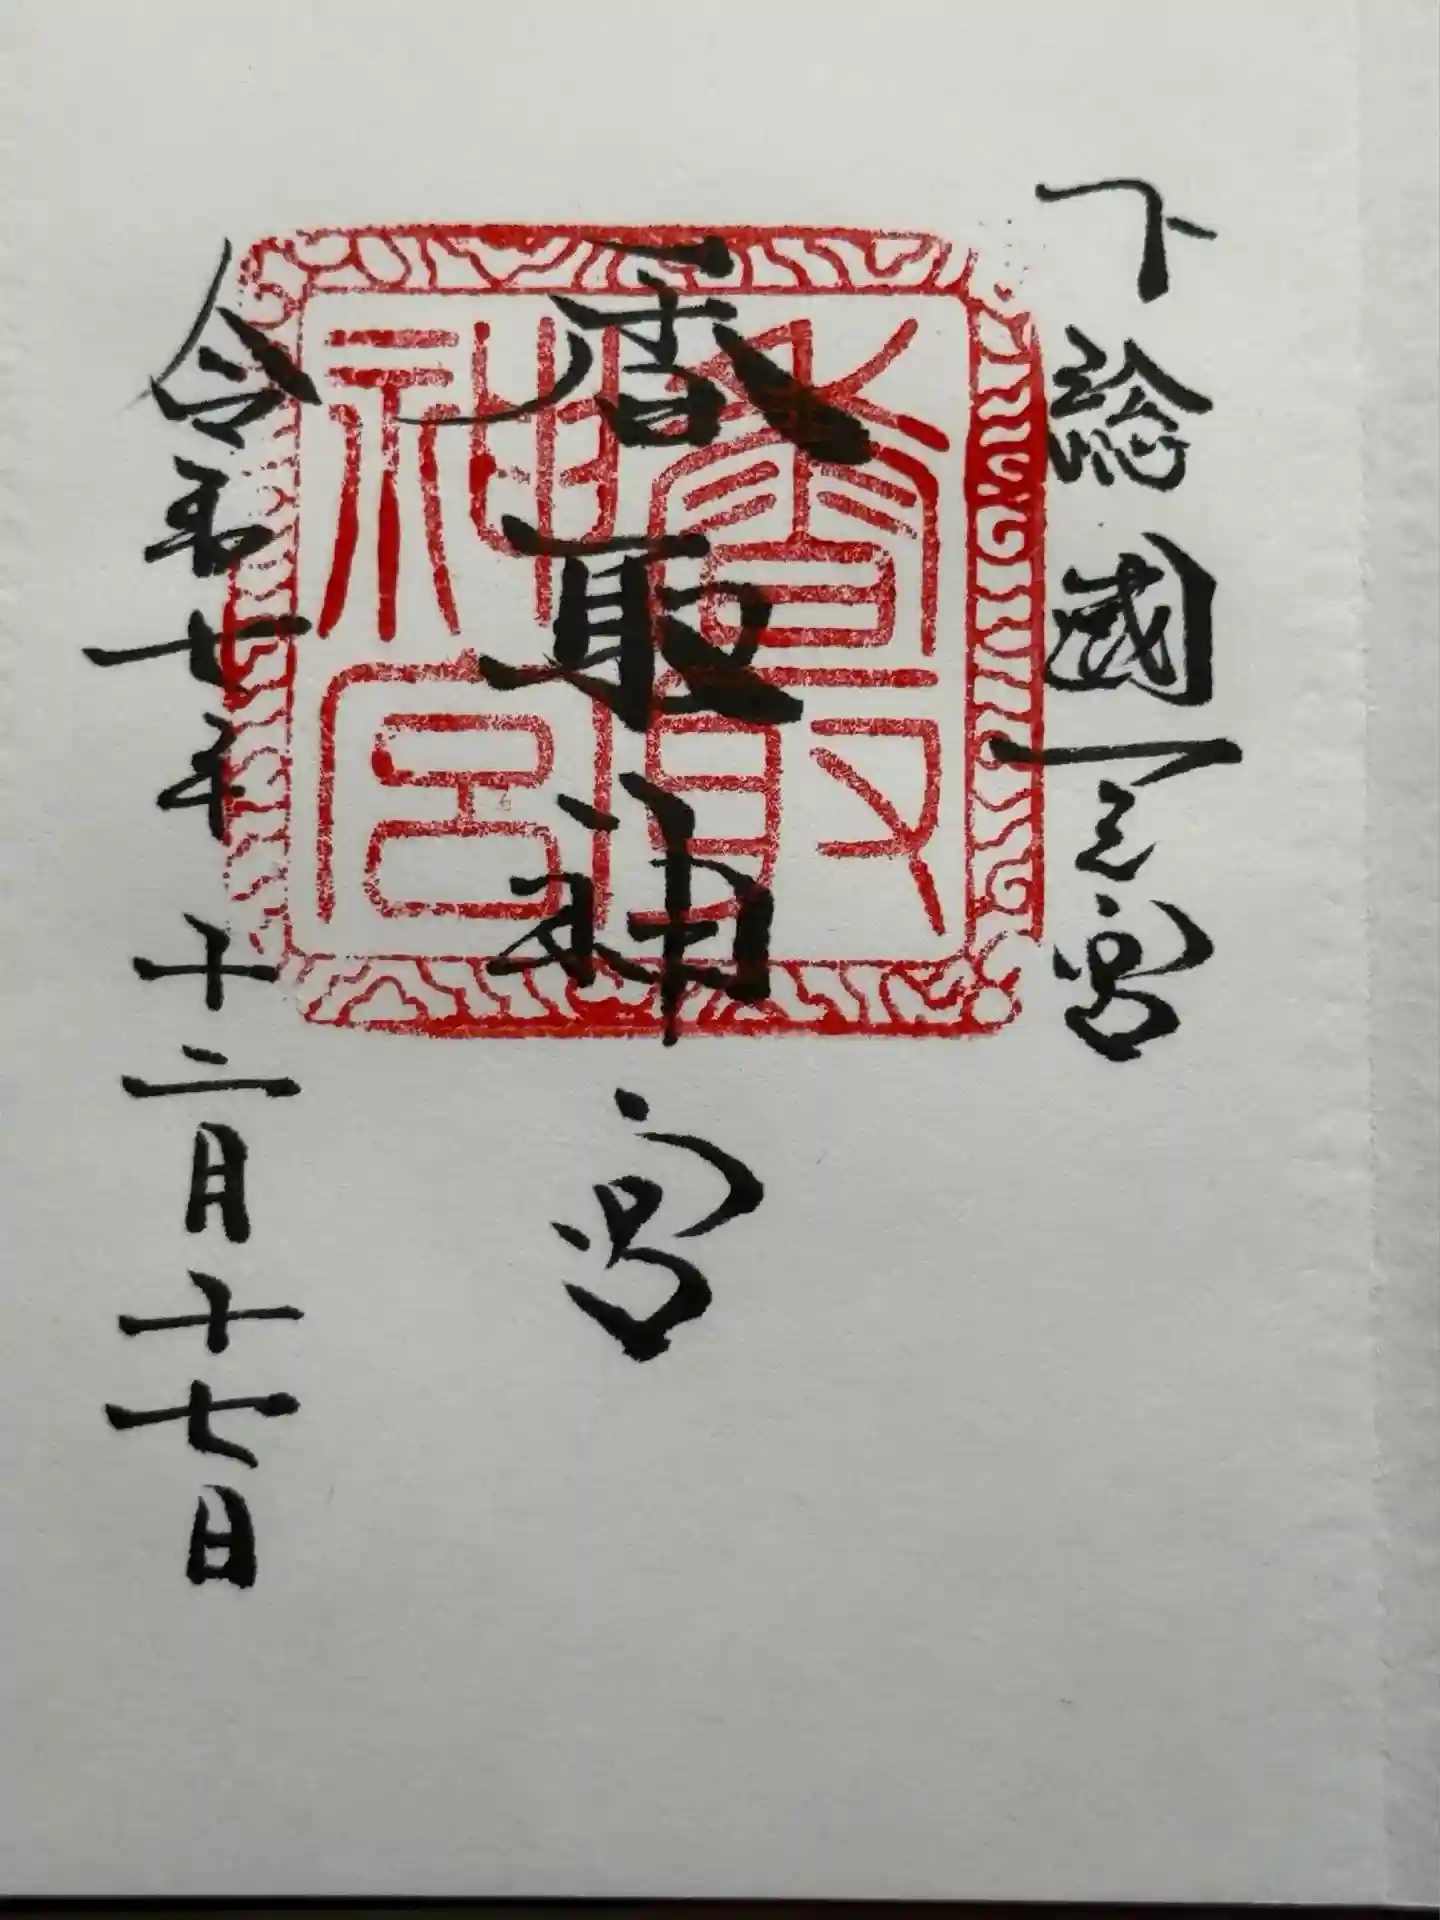 下総國一之宮
香取神宮
令和七年十二月十七日
香取
神宮